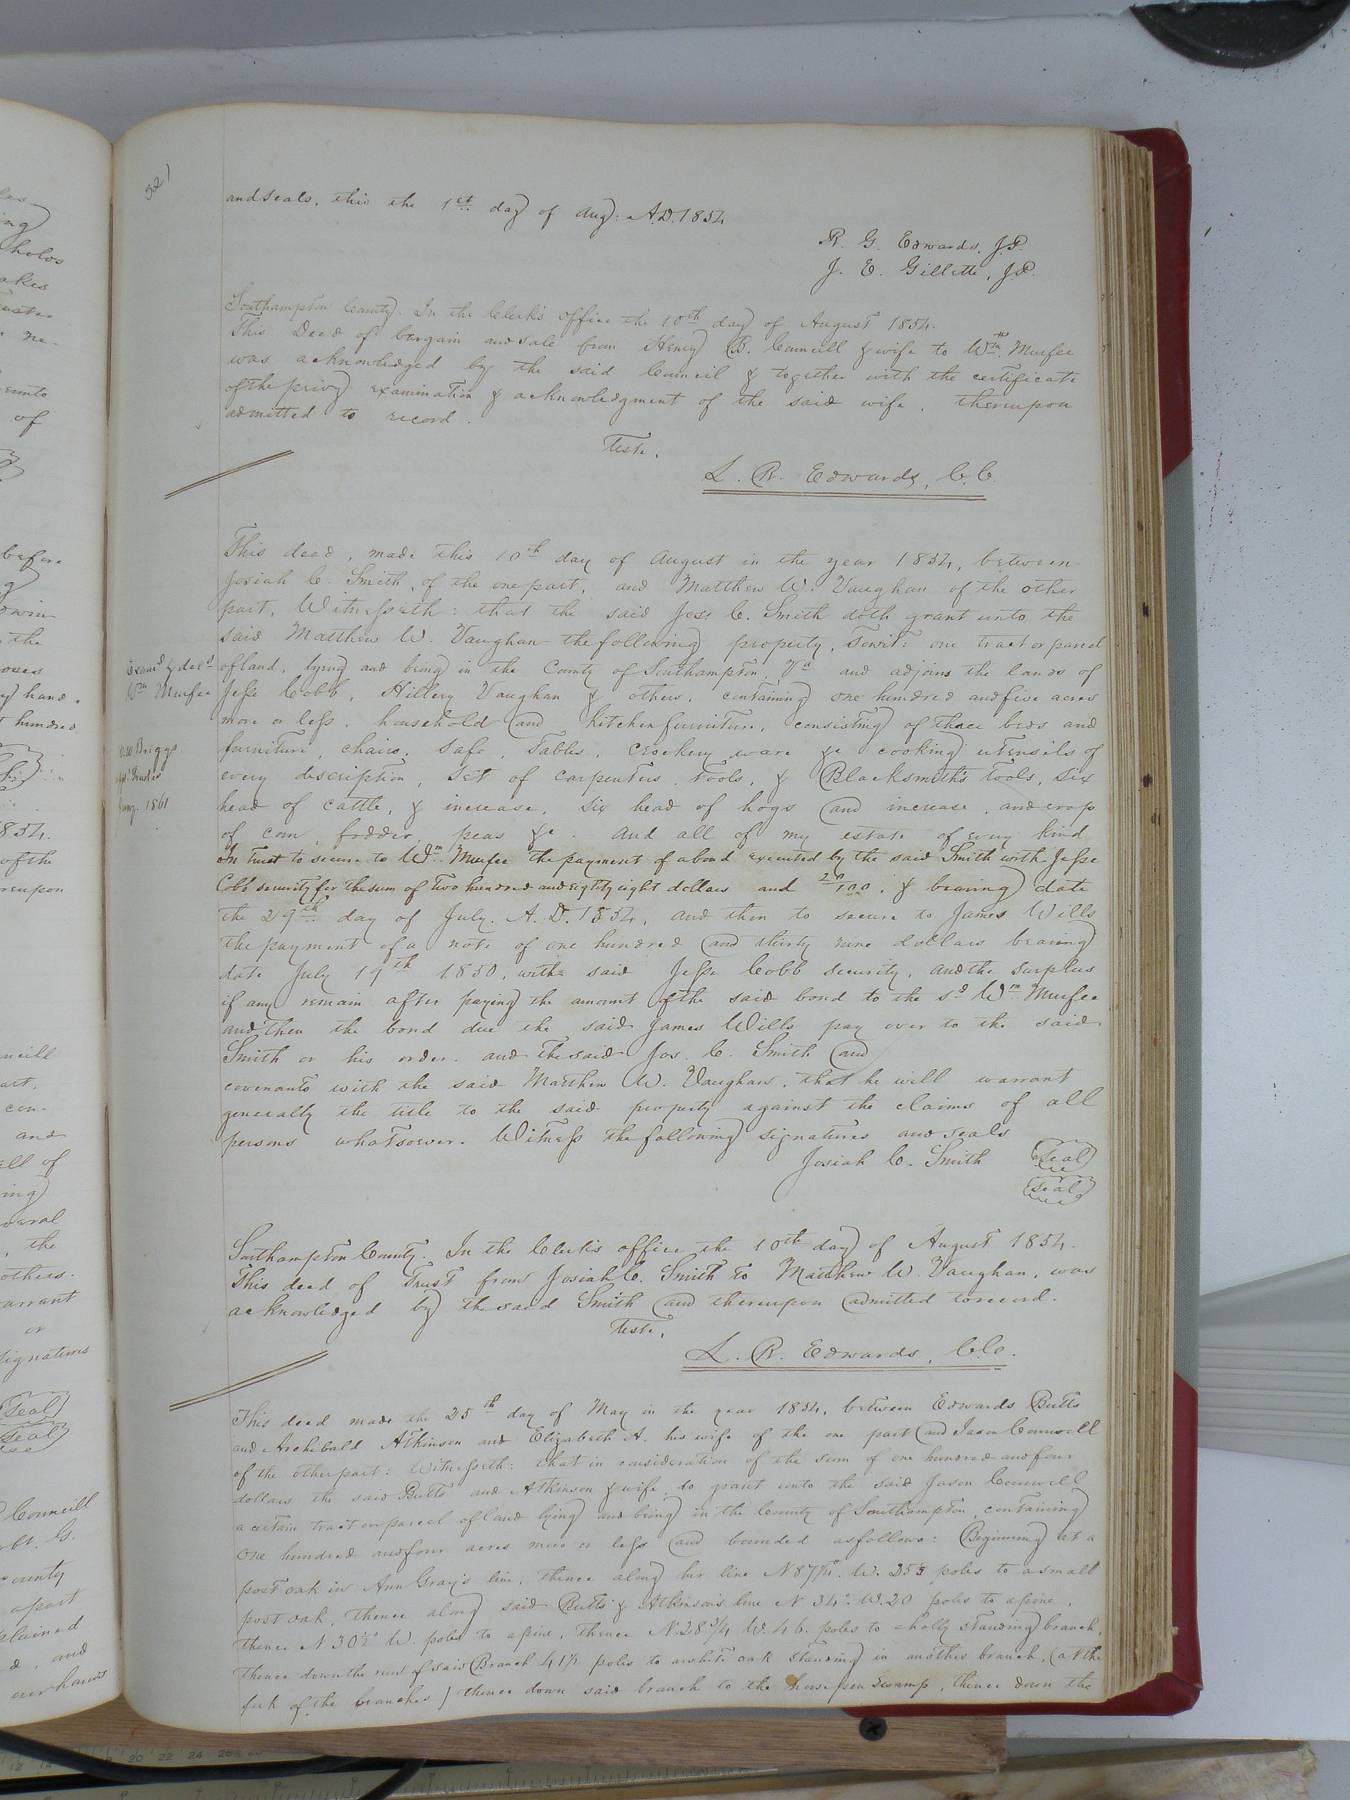 521
and seals, this the 1st day of Aug: A.D. 1854
R. G. Edwards, J.P.
J. E. Gillette, J.P.
Southampton County. In the Clerk's office the 10th day of August 1854.
This Deed of bargain and sale from Henry B. Councill & wife to Wm. Murfee
was acknowledged by the said Councill & together with the certificate
of the privy examination & acknowledgment of the said wife. thereupon
admitted to record.
Teste,
L. R. Edwards, C.C.
This deed, made this 10th day of August in the year 1854, between
Josiah C. Smith, of the one part, and Matthew W. Vaughan of the other
part, Witnesseth: that the said Jos: C. Smith doth grant unto the
said Matthew W. Vaughan the following property, towit: one tract or parcel
of land, lying and being in the County of Southampton, Va and adjoins the lands of
Jesse Cobb, Hillery Vaughan & others, containing one hundred and five acres
more or less. household and kitchen furniture, consisting of three beds and
furniture, chairs, safe, Tables, crockery ware &c cooking utensils of
every discription, set of carpenters Tools, & Blacksmith's Tools, six
head of cattle, & increase, six head of hogs and increase, and crop
of corn, fodder, peas &c. And all of my estate of every kind
In Trust to secure to Wm. Murfee the payment of a bond executed by the said Smith with Jesse
Cobb security for the sum of Two hundred and eighty eight dollars and 20/100, & bearing date
the 29th day of July. A.D. 1854, and then to secure to James Wills
the payment of a note of one hundred and thirty nine dollars bearing
date July 19th 1850, with said Jesse Cobb security, and the surplus
if any remain after paying the amount of the said bond to the sd Wm. Murfee
and then the bond due the said James Wills pay over to the said
Smith or his order. and the said Jos. C. Smith and
covenants with the said Matthew W. Vaughan, that he will warrant
generally the title to the said property against the claims of all
persons whatsoever. Witness the following signatures and seals
Josiah C. Smith (Seal)
(Seal)
Examd & deld
Wm Murfee
Briggs
1861
Southampton County. In the Clerk's office the 10th day of August 1854.
This deed of Trust from Josiah C. Smith to Matthew W. Vaughan, was
acknowledged by the said Smith and thereupon admitted to record.
Teste,
L. R. Edwards, C.C.
This deed made the 25th day of May in the year 1854, between Edwards Butts
and Archibald Atkinson and Elizabeth A. his wife of the one part and Jason Councill
of the other part: Witnesseth: that in consideration of the sum of one hundred and four
dollars the said Butts and Atkinson & wife, do grant unto the said Jason Councill
a certain tract or parcel of land lying and being in the County of Southampton, containing
One hundred and four acres more or less and bounded as follows: Beginning at a
post oak in Ann Gray's line, thence along her line W. poles to a small
post oak, thence along said Butts & Atkinson's line N 34° W. 20 poles to a pine,
thence N 30½° W. poles to a pine, thence N. 28¾ W. 46. poles to a holly standing branch,
thence down the run of said Branch 41½ poles to a white oak standing in another branch, (at the
fork of the branches) thence down said branch to the horse pen swamp, thence down the